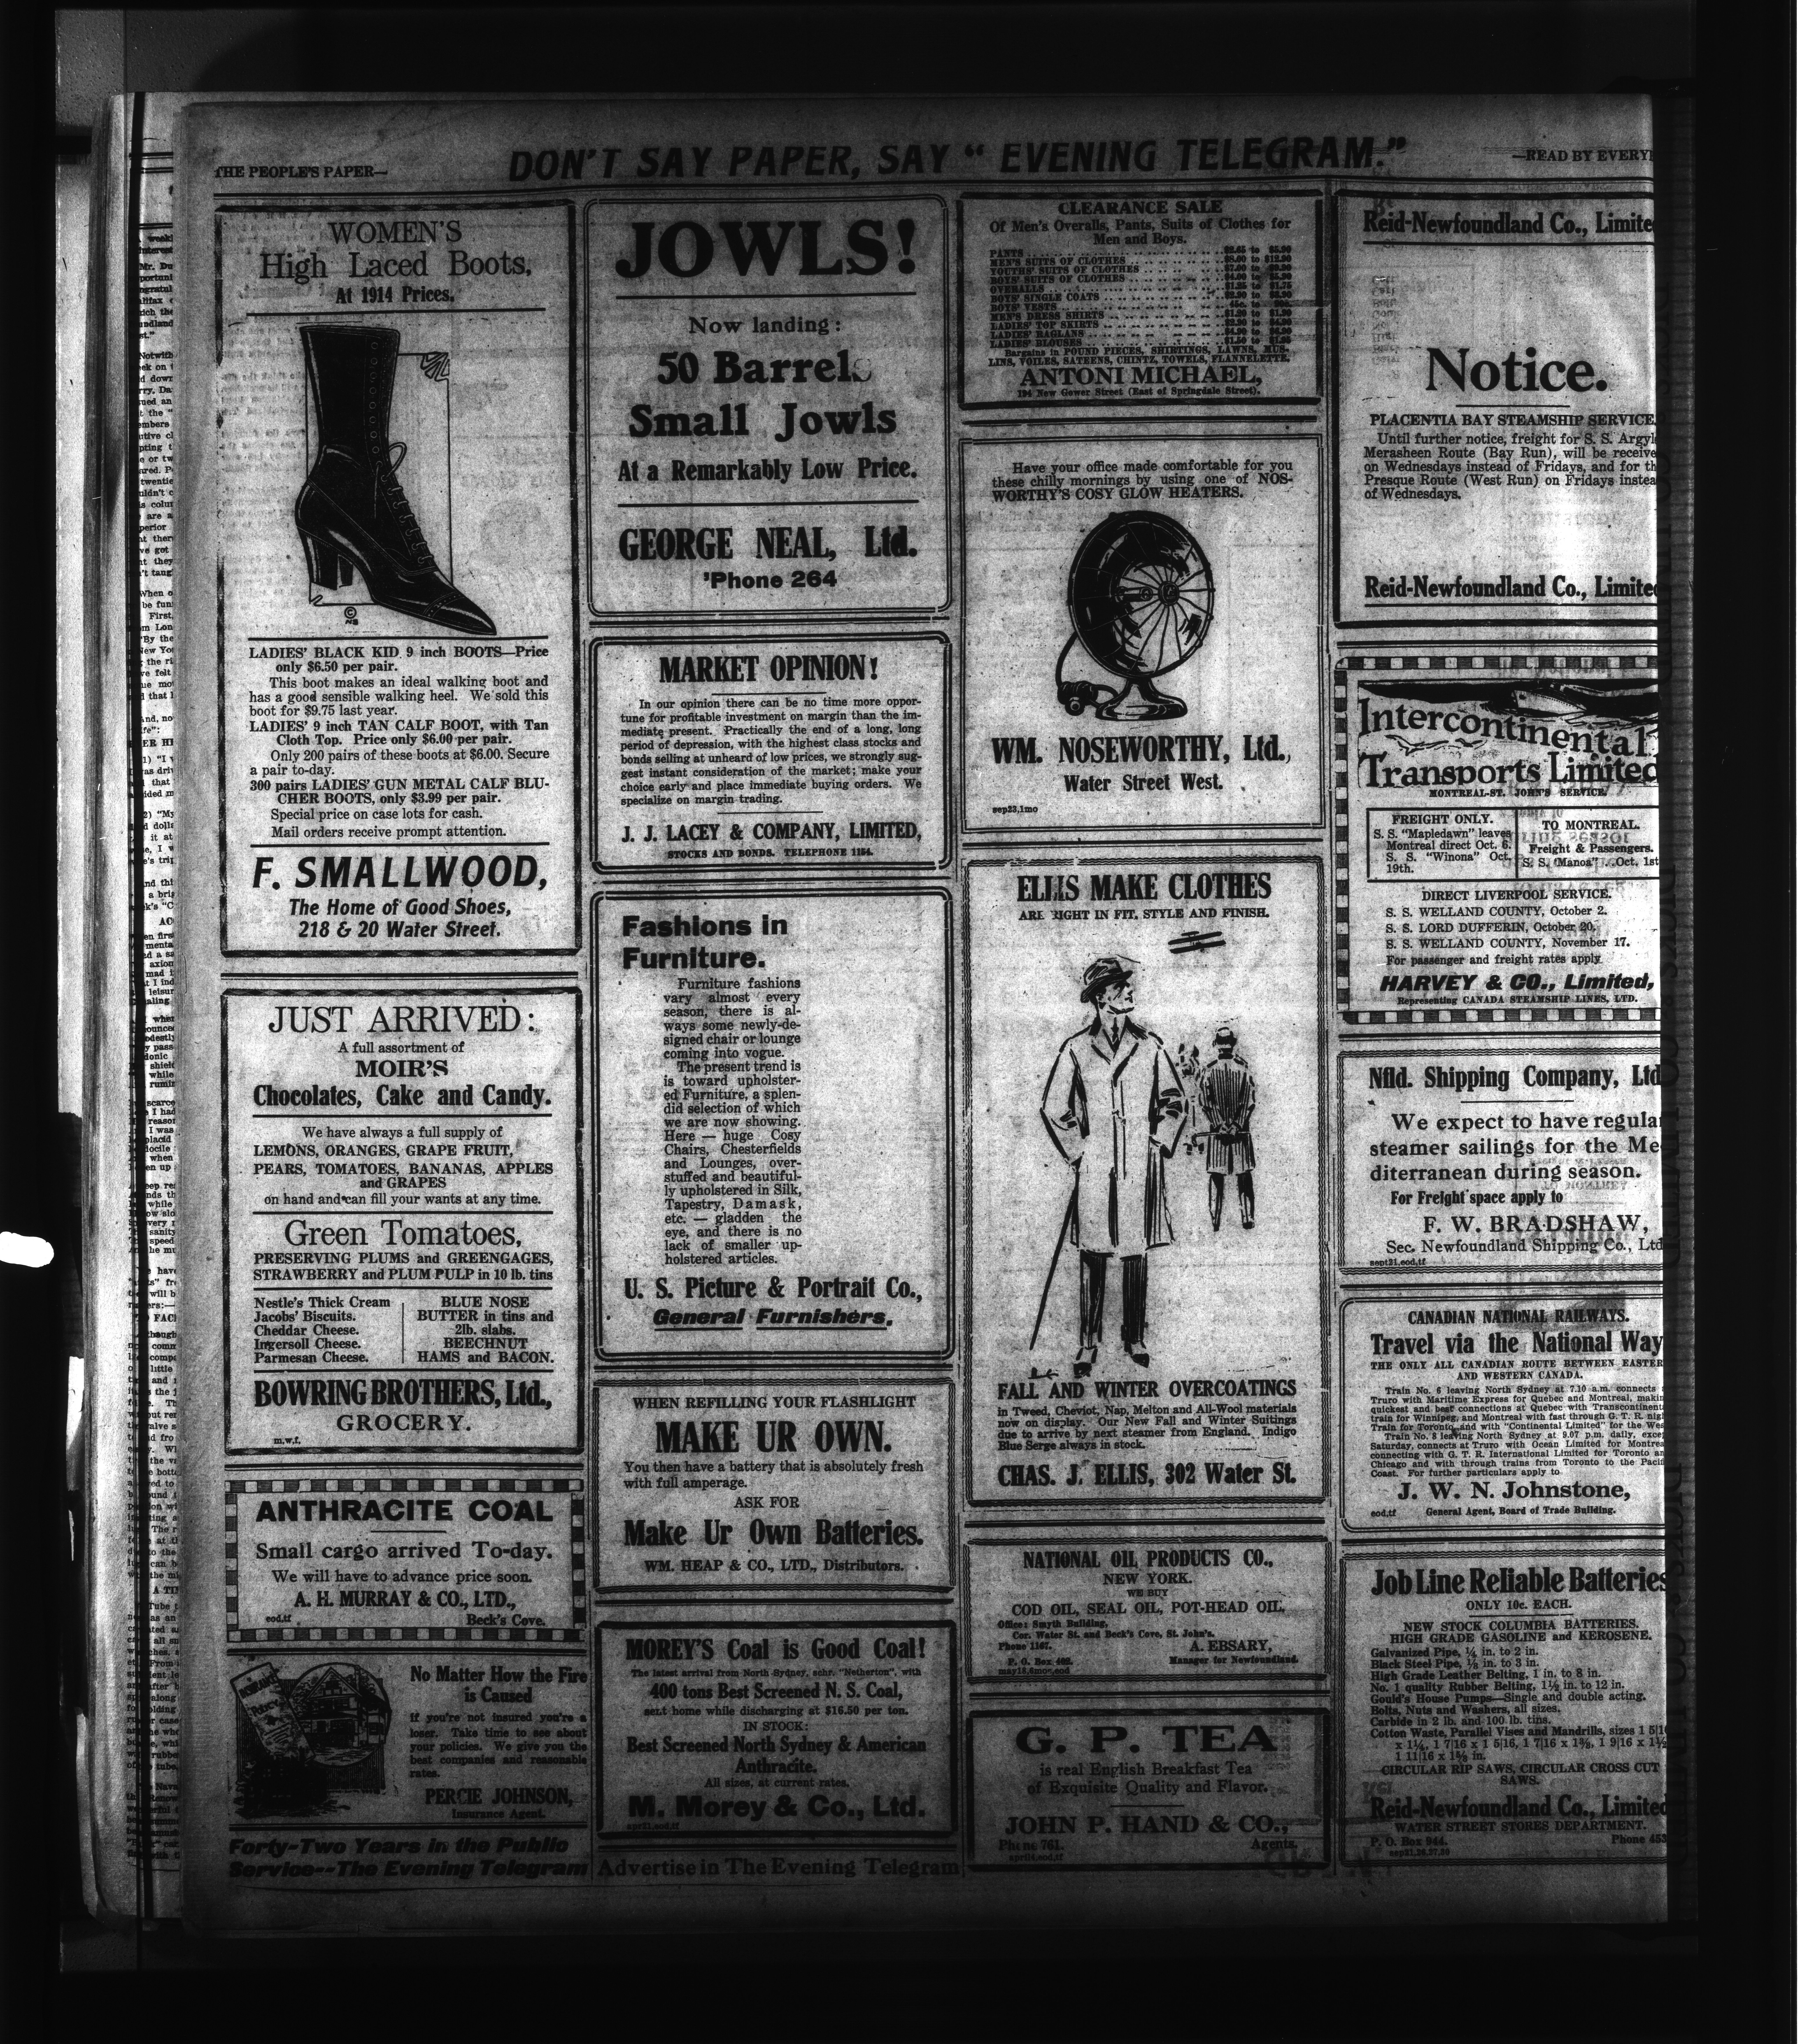 THE PEOPLE'S PAPER—
DON'T SAY PAPER, SAY " EVENING TELEGRAM."
—READ BY EVERY
WOMEN'S
High Laced Boots,
At 1914 Prices.
LADIES' BLACK KID 9 inch BOOTS—Price
only $6.50 per pair.
This boot makes an ideal walking boot and
has a good sensible walking heel. We sold this
boot for $9.75 last year.
LADIES' 9 inch TAN CALF BOOT, with Tan
Cloth Top. Price only $6.00 per pair.
Only 200 pairs of these boots at $6.00. Secure
a pair to-day.
300 pairs LADIES' GUN METAL CALF BLU-
CHER BOOTS, only $3.99 per pair.
Special price on case lots for cash.
Mail orders receive prompt attention.
F. SMALLWOOD,
The Home of Good Shoes,
218 & 20 Water Street.
JUST ARRIVED:
A full assortment of
MOIR'S
Chocolates, Cake and Candy.
We have always a full supply of
LEMONS, ORANGES, GRAPE FRUIT,
PEARS, TOMATOES, BANANAS, APPLES
and GRAPES
on hand and can fill your wants at any time.
Green Tomatoes,
PRESERVING PLUMS and GREENGAGES,
STRAWBERRY and PLUM PULP in 10 lb. tins
Nestle's Thick Cream
Jacobs' Biscuits.
Cheddar Cheese.
Ingersoll Cheese.
Parmesan Cheese.
BLUE NOSE
BUTTER in tins and
2lb. slabs.
BEECHNUT
HAMS and BACON.
BOWRING BROTHERS, Ltd.,
GROCERY.
m.w.f.
ANTHRACITE COAL
Small cargo arrived To-day.
We will have to advance price soon.
A. H. MURRAY & CO., LTD.,
eod,tf
Beck's Cove.
No Matter How the Fire
is Caused
if you're not insured you're a
loser. Take time to see about
your policies. We give you the
best companies and reasonable
rates.
PERCIE JOHNSON,
Insurance Agent.
Forty-Two Years in the Public
Service--The Evening Telegram
JOWLS!
Now landing:
50 Barrels
Small Jowls
At a Remarkably Low Price.
GEORGE NEAL, Ltd.
'Phone 264
MARKET OPINION!
In our opinion there can be no time more oppor-
tune for profitable investment on margin than the im-
mediate present. Practically the end of a long, long
period of depression, with the highest class stocks and
bonds selling at unheard of low prices, we strongly sug-
gest instant consideration of the market; make your
choice early and place immediate buying orders. We
specialize on margin trading.
J. J. LACEY & COMPANY, LIMITED,
STOCKS AND BONDS. TELEPHONE 1154.
Fashions in
Furniture.
Furniture fashions
vary almost every
season, there is al-
ways some newly-de-
signed chair or lounge
coming into vogue.
The present trend is
is toward upholster-
ed Furniture, a splen-
did selection of which
we are now showing.
Here — huge Cosy
Chairs, Chesterfields
and Lounges, over-
stuffed and beautiful-
ly upholstered in Silk,
Tapestry, Damask,
etc. — gladden the
eye, and there is no
lack of smaller up-
holstered articles.
U. S. Picture & Portrait Co.,
General Furnishers.
WHEN REFILLING YOUR FLASHLIGHT
MAKE UR OWN.
You then have a battery that is absolutely fresh
with full amperage.
ASK FOR
Make Ur Own Batteries.
WM. HEAP & CO., LTD., Distributors.
MOREY'S Coal is Good Coal!
The latest arrival from North Sydney, schr. "Netherton", with
400 tons Best Screened N. S. Coal,
sent home while discharging at $16.50 per ton.
IN STOCK:
Best Screened North Sydney & American
Anthracite.
All sizes, at current rates.
M. Morey & Co., Ltd.
Advertise in The Evening Telegram
CLEARANCE SALE
Of Men's Overalls, Pants, Suits of Clothes for
Men and Boys.
PANTS
MEN'S SUITS OF CLOTHES
YOUTHS' SUITS OF CLOTHES
BOYS' SUITS OF CLOTHES
OVERALLS
BOYS' SINGLE COATS
BOYS' VESTS
MEN'S DRESS SHIRTS
LADIES' TOP SKIRTS
LADIES' RAGLANS
LADIES' BLOUSES
Bargains in POUND PIECES, SHIRTINGS, LAWNS, MUS-
LINS, VOILES, SATEENS, CHINTZ, TOWELS, FLANNELETTE.
ANTONI MICHAEL,
194 New Gower Street (East of Springdale Street).
Have your office made comfortable for you
these chilly mornings by using one of NOS-
WORTHY'S COSY GLOW HEATERS.
WM. NOSEWORTHY, Ltd.,
Water Street West.
sep23,1mo
ELLIS MAKE CLOTHES
ARE RIGHT IN FIT, STYLE AND FINISH.
FALL AND WINTER OVERCOATINGS
in Tweed, Cheviot, Nap, Melton and All-Wool materials
now on display. Our New Fall and Winter Suitings
due to arrive by next steamer from England. Indigo
Blue Serge always in stock.
CHAS. J. ELLIS, 302 Water St.
NATIONAL OIL PRODUCTS CO.,
NEW YORK.
WE BUY
COD OIL, SEAL OIL, POT-HEAD OIL.
Office: Smyth Building,
Cor. Water St. and Beck's Cove, St. John's.
Phone 1167.
A. EBSARY,
P. O. Box 402.
Manager for Newfoundland.
may18,6mos,eod
G. P. TEA
is real English Breakfast Tea
of Exquisite Quality and Flavor.
JOHN P. HAND & CO.,
Phone 761.
Agents.
Reid-Newfoundland Co., Limite
Notice.
PLACENTIA BAY STEAMSHIP SERVICE.
Until further notice, freight for S. S. Argyl
Merasheen Route (Bay Run), will be receive
on Wednesdays instead of Fridays, and for th
Presque Route (West Run) on Fridays instea
of Wednesdays.
Reid-Newfoundland Co., Limited
Intercontinental
Transports Limited
MONTREAL-ST. JOHN'S SERVICE.
FREIGHT ONLY.
S. S. "Mapledawn" leaves
Montreal direct Oct. 6.
S. S. "Winona" Oct.
19th.
TO MONTREAL.
Freight & Passengers.
S. S. "Manoa" ...Oct. 1st
DIRECT LIVERPOOL SERVICE.
S. S. WELLAND COUNTY, October 2.
S. S. LORD DUFFERIN, October 20.
S. S. WELLAND COUNTY, November 17.
For passenger and freight rates apply
HARVEY & CO., Limited,
Representing CANADA STEAMSHIP LINES, LTD.
Nfld. Shipping Company, Ltd
We expect to have regular
steamer sailings for the Me
diterranean during season.
For Freight space apply to
F. W. BRADSHAW,
Sec. Newfoundland Shipping Co., Ltd
sept21,eod,tf
CANADIAN NATIONAL RAILWAYS.
Travel via the National Way
THE ONLY ALL CANADIAN ROUTE BETWEEN EASTER
AND WESTERN CANADA.
Train No. 6 leaving North Sydney at 7.10 a.m. connects
Truro with Maritime Express for Quebec and Montreal, makin
quickest and best connections at Quebec with Transcontinenta
train for Winnipeg, and Montreal with fast through G. T. R. nigh
Train for Toronto, and with "Continental Limited" for the Wes
Train No. 8 leaving North Sydney at 9.07 p.m. daily, excep
Saturday, connects at Truro with Ocean Limited for Montrea
connecting with G. T. R. International Limited for Toronto an
Chicago and with through trains from Toronto to the Pacifi
Coast. For further particulars apply to
J. W. N. Johnstone,
eod,tf
General Agent, Board of Trade Building.
Job Line Reliable Batteries
ONLY 10c. EACH.
NEW STOCK COLUMBIA BATTERIES.
HIGH GRADE GASOLINE and KEROSENE.
Galvanized Pipe, ¼ in. to 2 in.
Black Steel Pipe, ⅛ in. to 3 in.
High Grade Leather Belting, 1 in. to 8 in.
No. 1 quality Rubber Belting, 1½ in. to 12 in.
Gould's House Pumps—Single and double acting.
Bolts, Nuts and Washers, all sizes.
Carbide in 2 lb. and 100 lb. tins.
Cotton Waste, Parallel Vises and Mandrills, sizes 1 5|16
x 1¼, 1 7|16 x 1 5|16, 1 7|16 x 1⅜, 1 9|16 x 1½
1 11|16 x 1⅝ in.
CIRCULAR RIP SAWS, CIRCULAR CROSS CUT
SAWS.
Reid-Newfoundland Co., Limited
WATER STREET STORES DEPARTMENT.
P. O. Box 944.
Phone 453